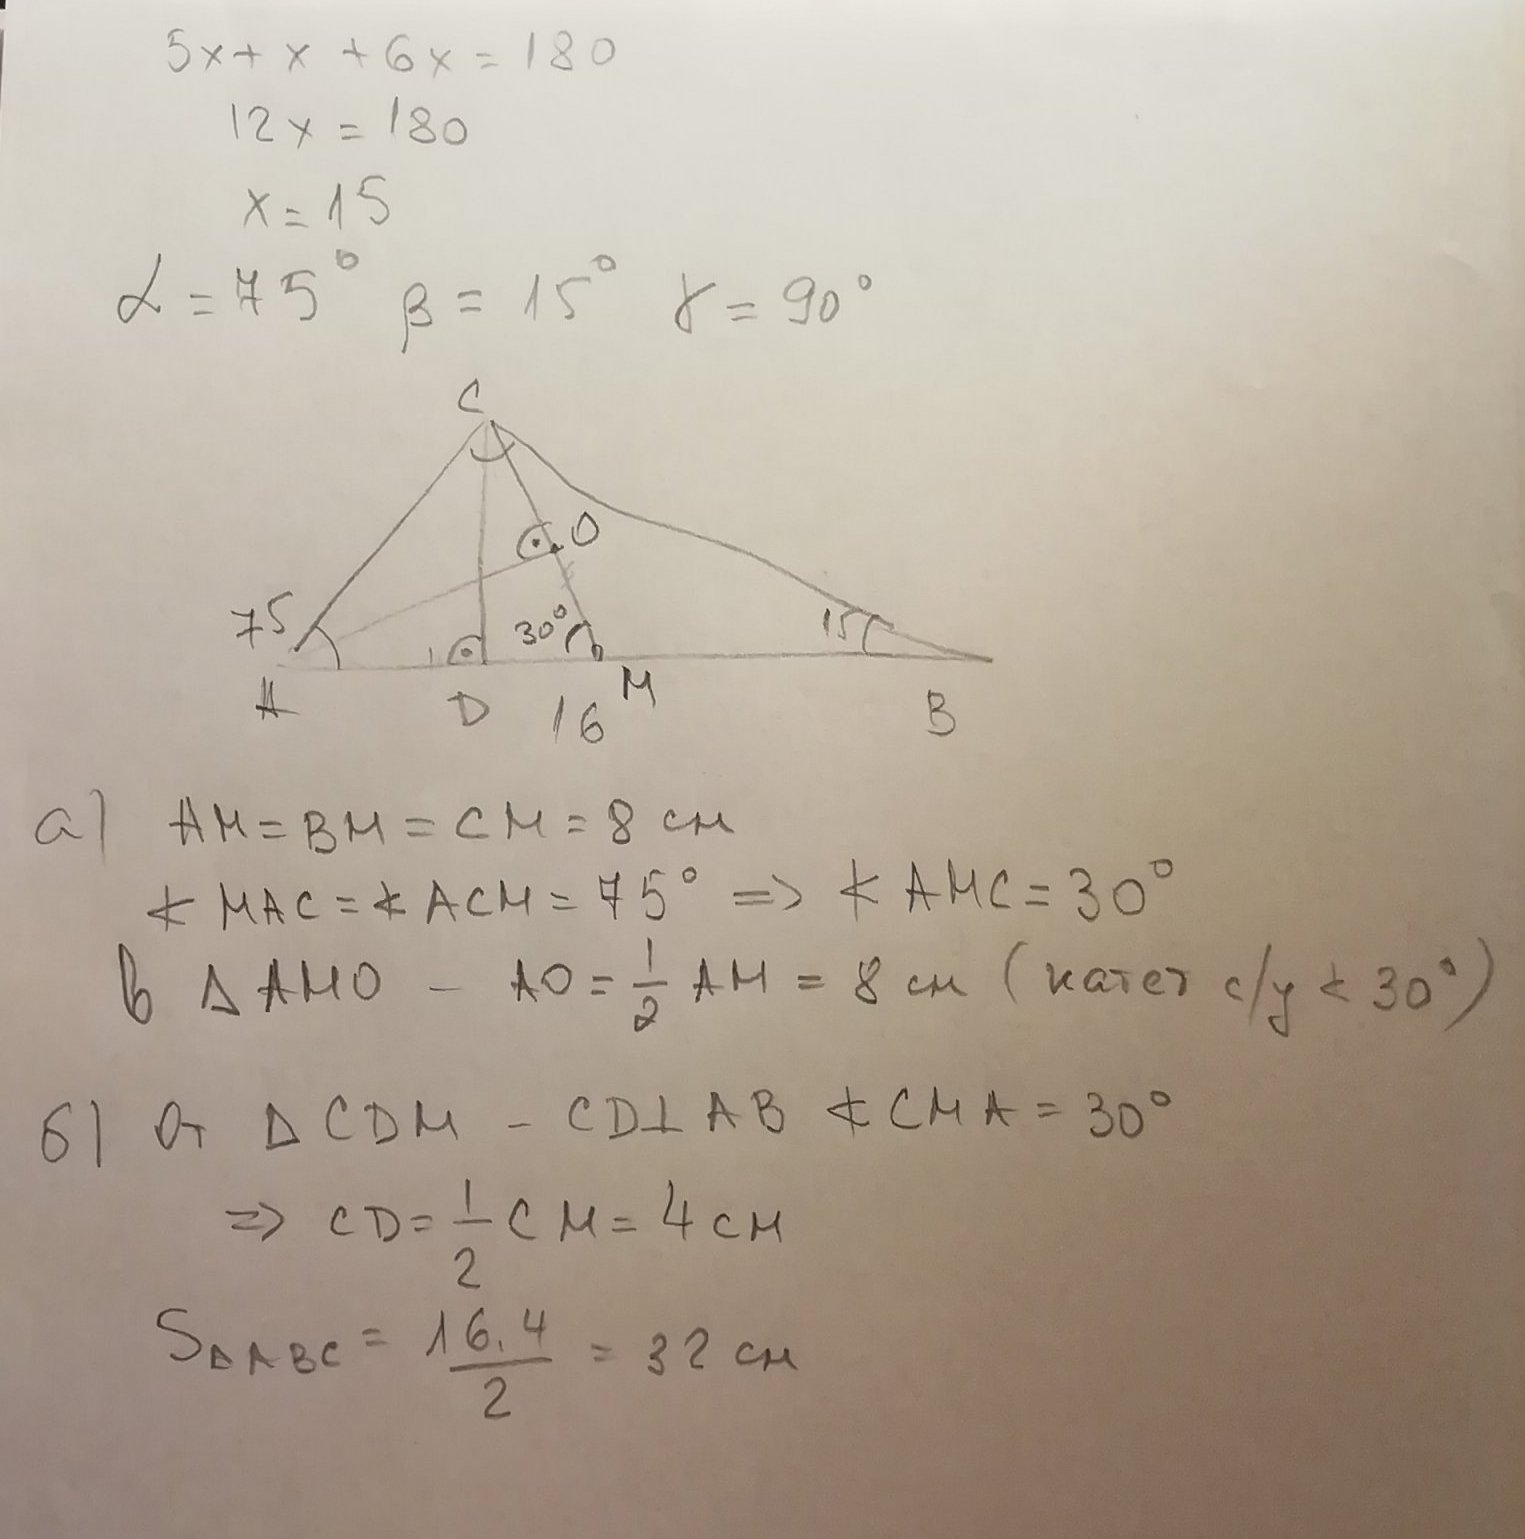 5x + x + 6x = 180
12x = 180
x = 15
α = 75° β = 15° γ = 90°
C
O
75
30°
15
A D 16 M B
а) AM = BM = CM = 8 см
∢ MAC = ∢ ACM = 75° => ∢ AMC = 30°
В Δ AMO - AO = 1/2 AM = 8 см (катет с/у ∢ 30°)
б) От Δ CDM - CD ⊥ AB ∢ CMA = 30°
=> CD = 1/2 CM = 4 см
S Δ ABC = 16.4/2 = 32 см